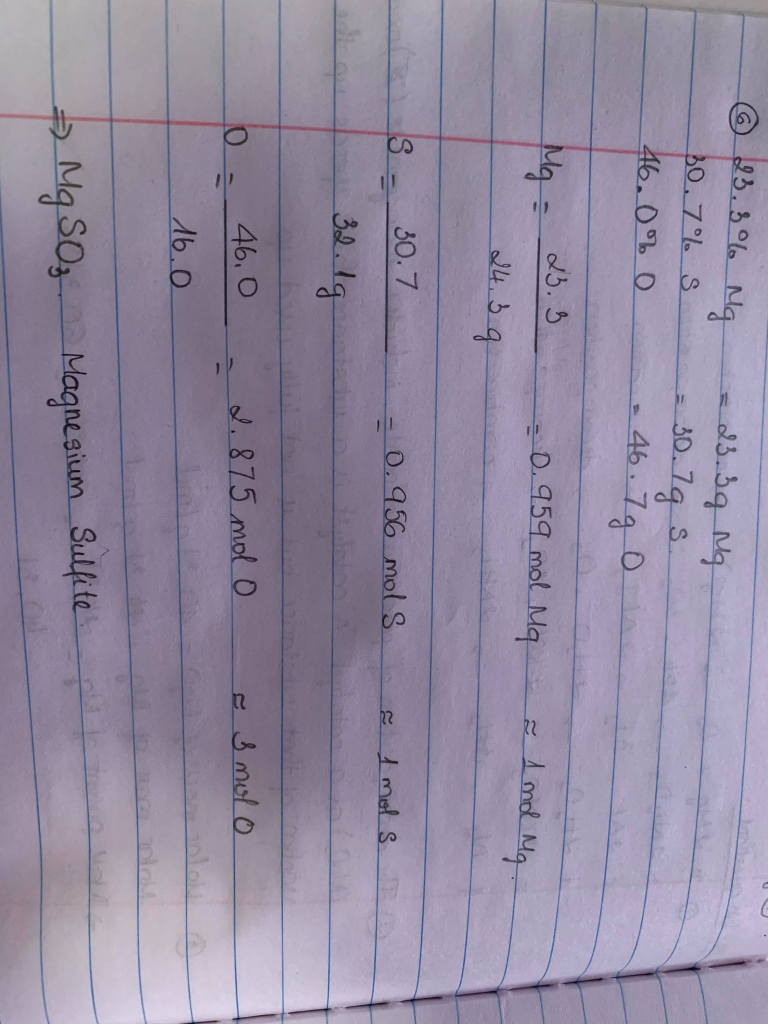 ⑥ 23.3% Mg = 23.3g Mg
30.7% S = 30.7g S
46.0% O = 46.7g O
Mg = 23.3 / 24.3 g = 0.959 mol Mg ≈ 1 mol Mg.
S = 30.7 / 32.1g = 0.956 mol S ≈ 1 mol S
O = 46.0 / 16.0 = 2.875 mol O ≈ 3 mol O
⇒ MgSO₃. Magnesium Sulfite.